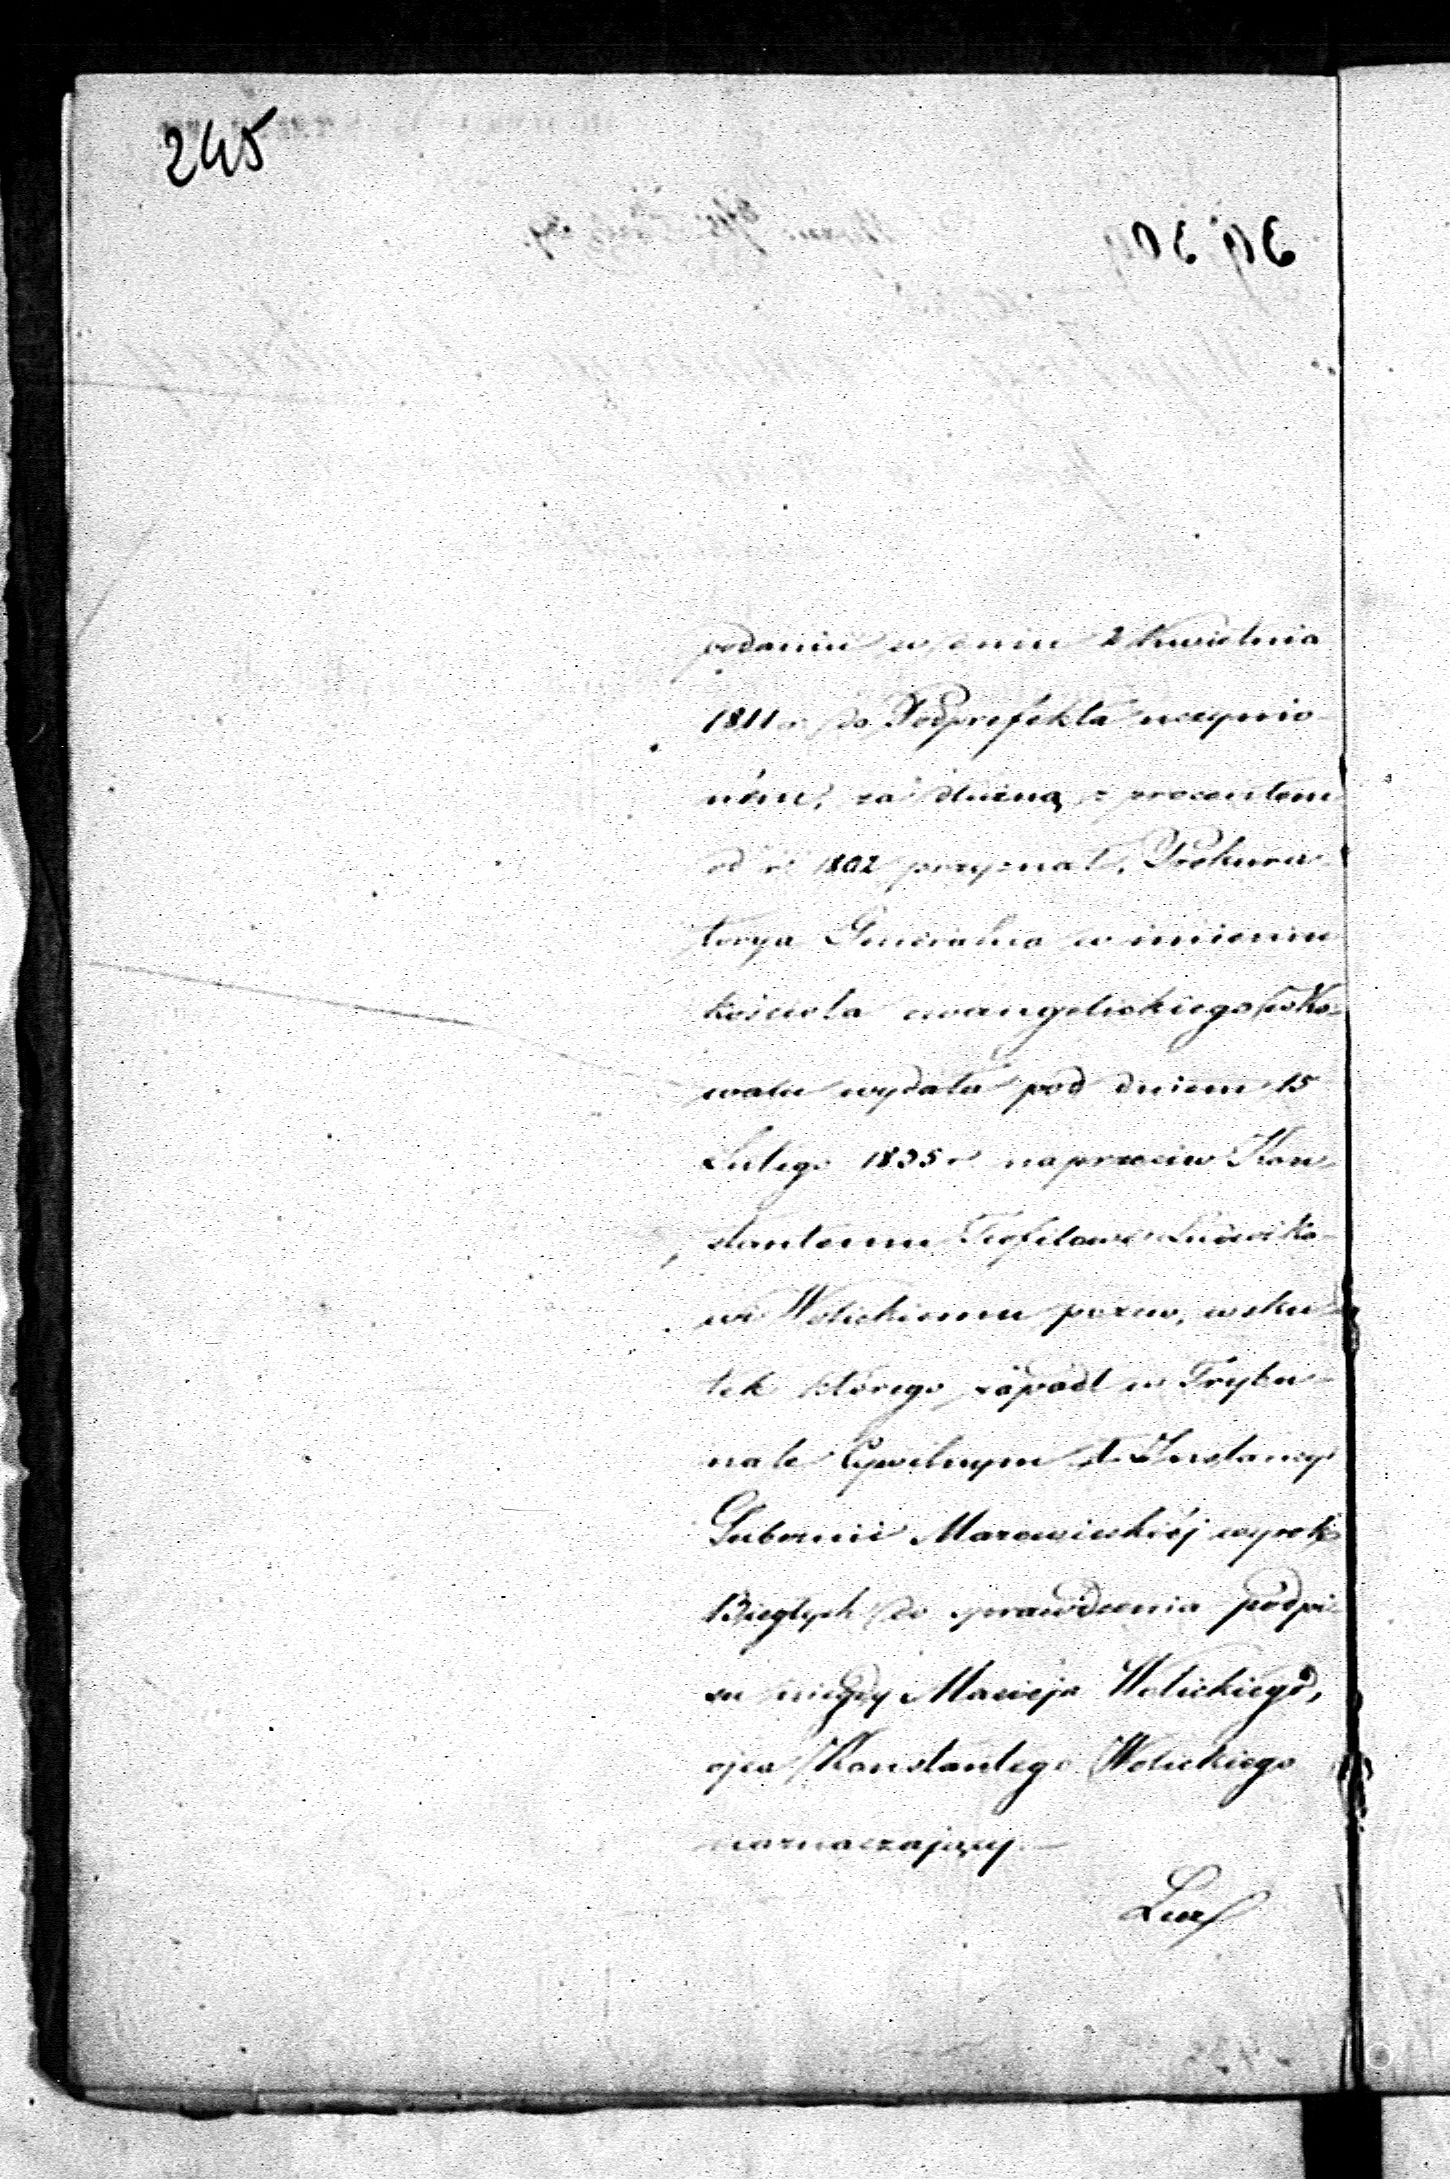 245
podaniu w dniu 2 Kwietnia
1811 r. do Podprefekta uczynio-
ném, za dłużną z procentem
od r. 1802 przyznał, Prokura-
torya Generalna w imieniu
kościoła ewangelickiego w Ko-
walu wydała pod dniem 15
Lutego 1835 r naprzeciw Kon-
stantemu Teofilowi Ludwiko-
wi Wolickiemu pozew, wsku-
tek którego zapadł w Trybu-
nale Cywilnym I. Instancyi
Gubernii Mazowieckiéj wyrok
Biegłych do sprawdzenia podpi-
su niegdy Macieja Wolickiego,
ojca Konstantego Wolickiego
naznaczający.—